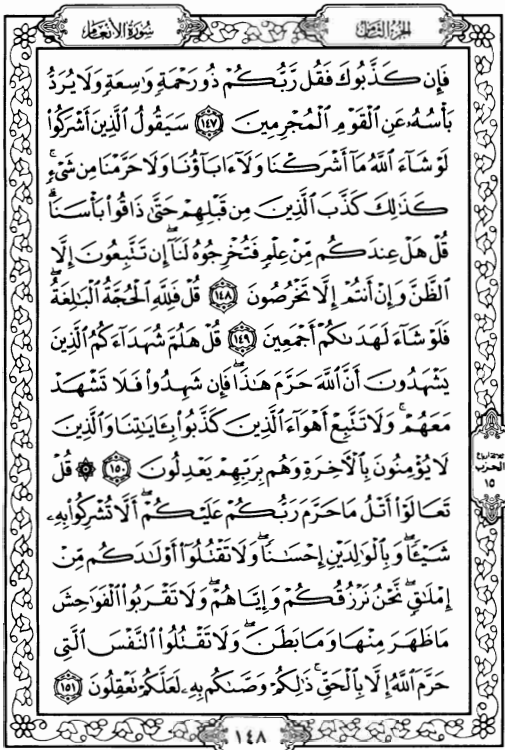 سُورَةُ الأَنْعَام
الجُزْءُ الثَّامِنُ
فَإِن كَذَّبُوكَ فَقُل رَّبُّكُمْ ذُو رَحْمَةٍ وَاسِعَةٍ وَلَا يُرَدُّ
بَأْسُهُۥ عَنِ ٱلْقَوْمِ ٱلْمُجْرِمِينَ ١٤٧ سَيَقُولُ ٱلَّذِينَ أَشْرَكُوا۟
لَوْ شَآءَ ٱللَّهُ مَآ أَشْرَكْنَا وَلَآ ءَابَآؤُنَا وَلَا حَرَّمْنَا مِن شَىْءٍ ۚ
كَذَٰلِكَ كَذَّبَ ٱلَّذِينَ مِن قَبْلِهِمْ حَتَّىٰ ذَاقُوا۟ بَأْسَنَا ۗ
قُلْ هَلْ عِندَكُم مِّنْ عِلْمٍ فَتُخْرِجُوهُ لَنَآ ۖ إِن تَتَّبِعُونَ إِلَّا
ٱلظَّنَّ وَإِنْ أَنتُمْ إِلَّا تَخْرُصُونَ ١٤٨ قُلْ فَلِلَّهِ ٱلْحُجَّةُ ٱلْبَٰلِغَةُ ۖ
فَلَوْ شَآءَ لَهَدَىٰكُمْ أَجْمَعِينَ ١٤٩ قُلْ هَلُمَّ شُهَدَآءَكُمُ ٱلَّذِينَ
يَشْهَدُونَ أَنَّ ٱللَّهَ حَرَّمَ هَٰذَا ۖ فَإِن شَهِدُوا۟ فَلَا تَشْهَدْ
مَعَهُمْ ۚ وَلَا تَتَّبِعْ أَهْوَآءَ ٱلَّذِينَ كَذَّبُوا۟ بِـَٔايَٰتِنَا وَٱلَّذِينَ
لَا يُؤْمِنُونَ بِٱلْـَٔاخِرَةِ وَهُم بِرَبِّهِمْ يَعْدِلُونَ ١٥٠ ۞ قُلْ
تَعَالَوْا۟ أَتْلُ مَا حَرَّمَ رَبُّكُمْ عَلَيْكُمْ ۖ أَلَّا تُشْرِكُوا۟ بِهِۦ
شَيْـًٔا ۖ وَبِٱلْوَٰلِدَيْنِ إِحْسَٰنًا ۖ وَلَا تَقْتُلُوٓا۟ أَوْلَٰدَكُم مِّنْ
إِمْلَٰقٍ ۖ نَّحْنُ نَرْزُقُكُمْ وَإِيَّاهُمْ ۖ وَلَا تَقْرَبُوا۟ ٱلْفَوَٰحِشَ
مَا ظَهَرَ مِنْهَا وَمَا بَطَنَ ۖ وَلَا تَقْتُلُوا۟ ٱلنَّفْسَ ٱلَّتِى
حَرَّمَ ٱللَّهُ إِلَّا بِٱلْحَقِّ ۚ ذَٰلِكُمْ وَصَّىٰكُم بِهِۦ لَعَلَّكُمْ تَعْقِلُونَ ١٥١
ثلاثة أرباع
الحزب
١٥
١٤٨